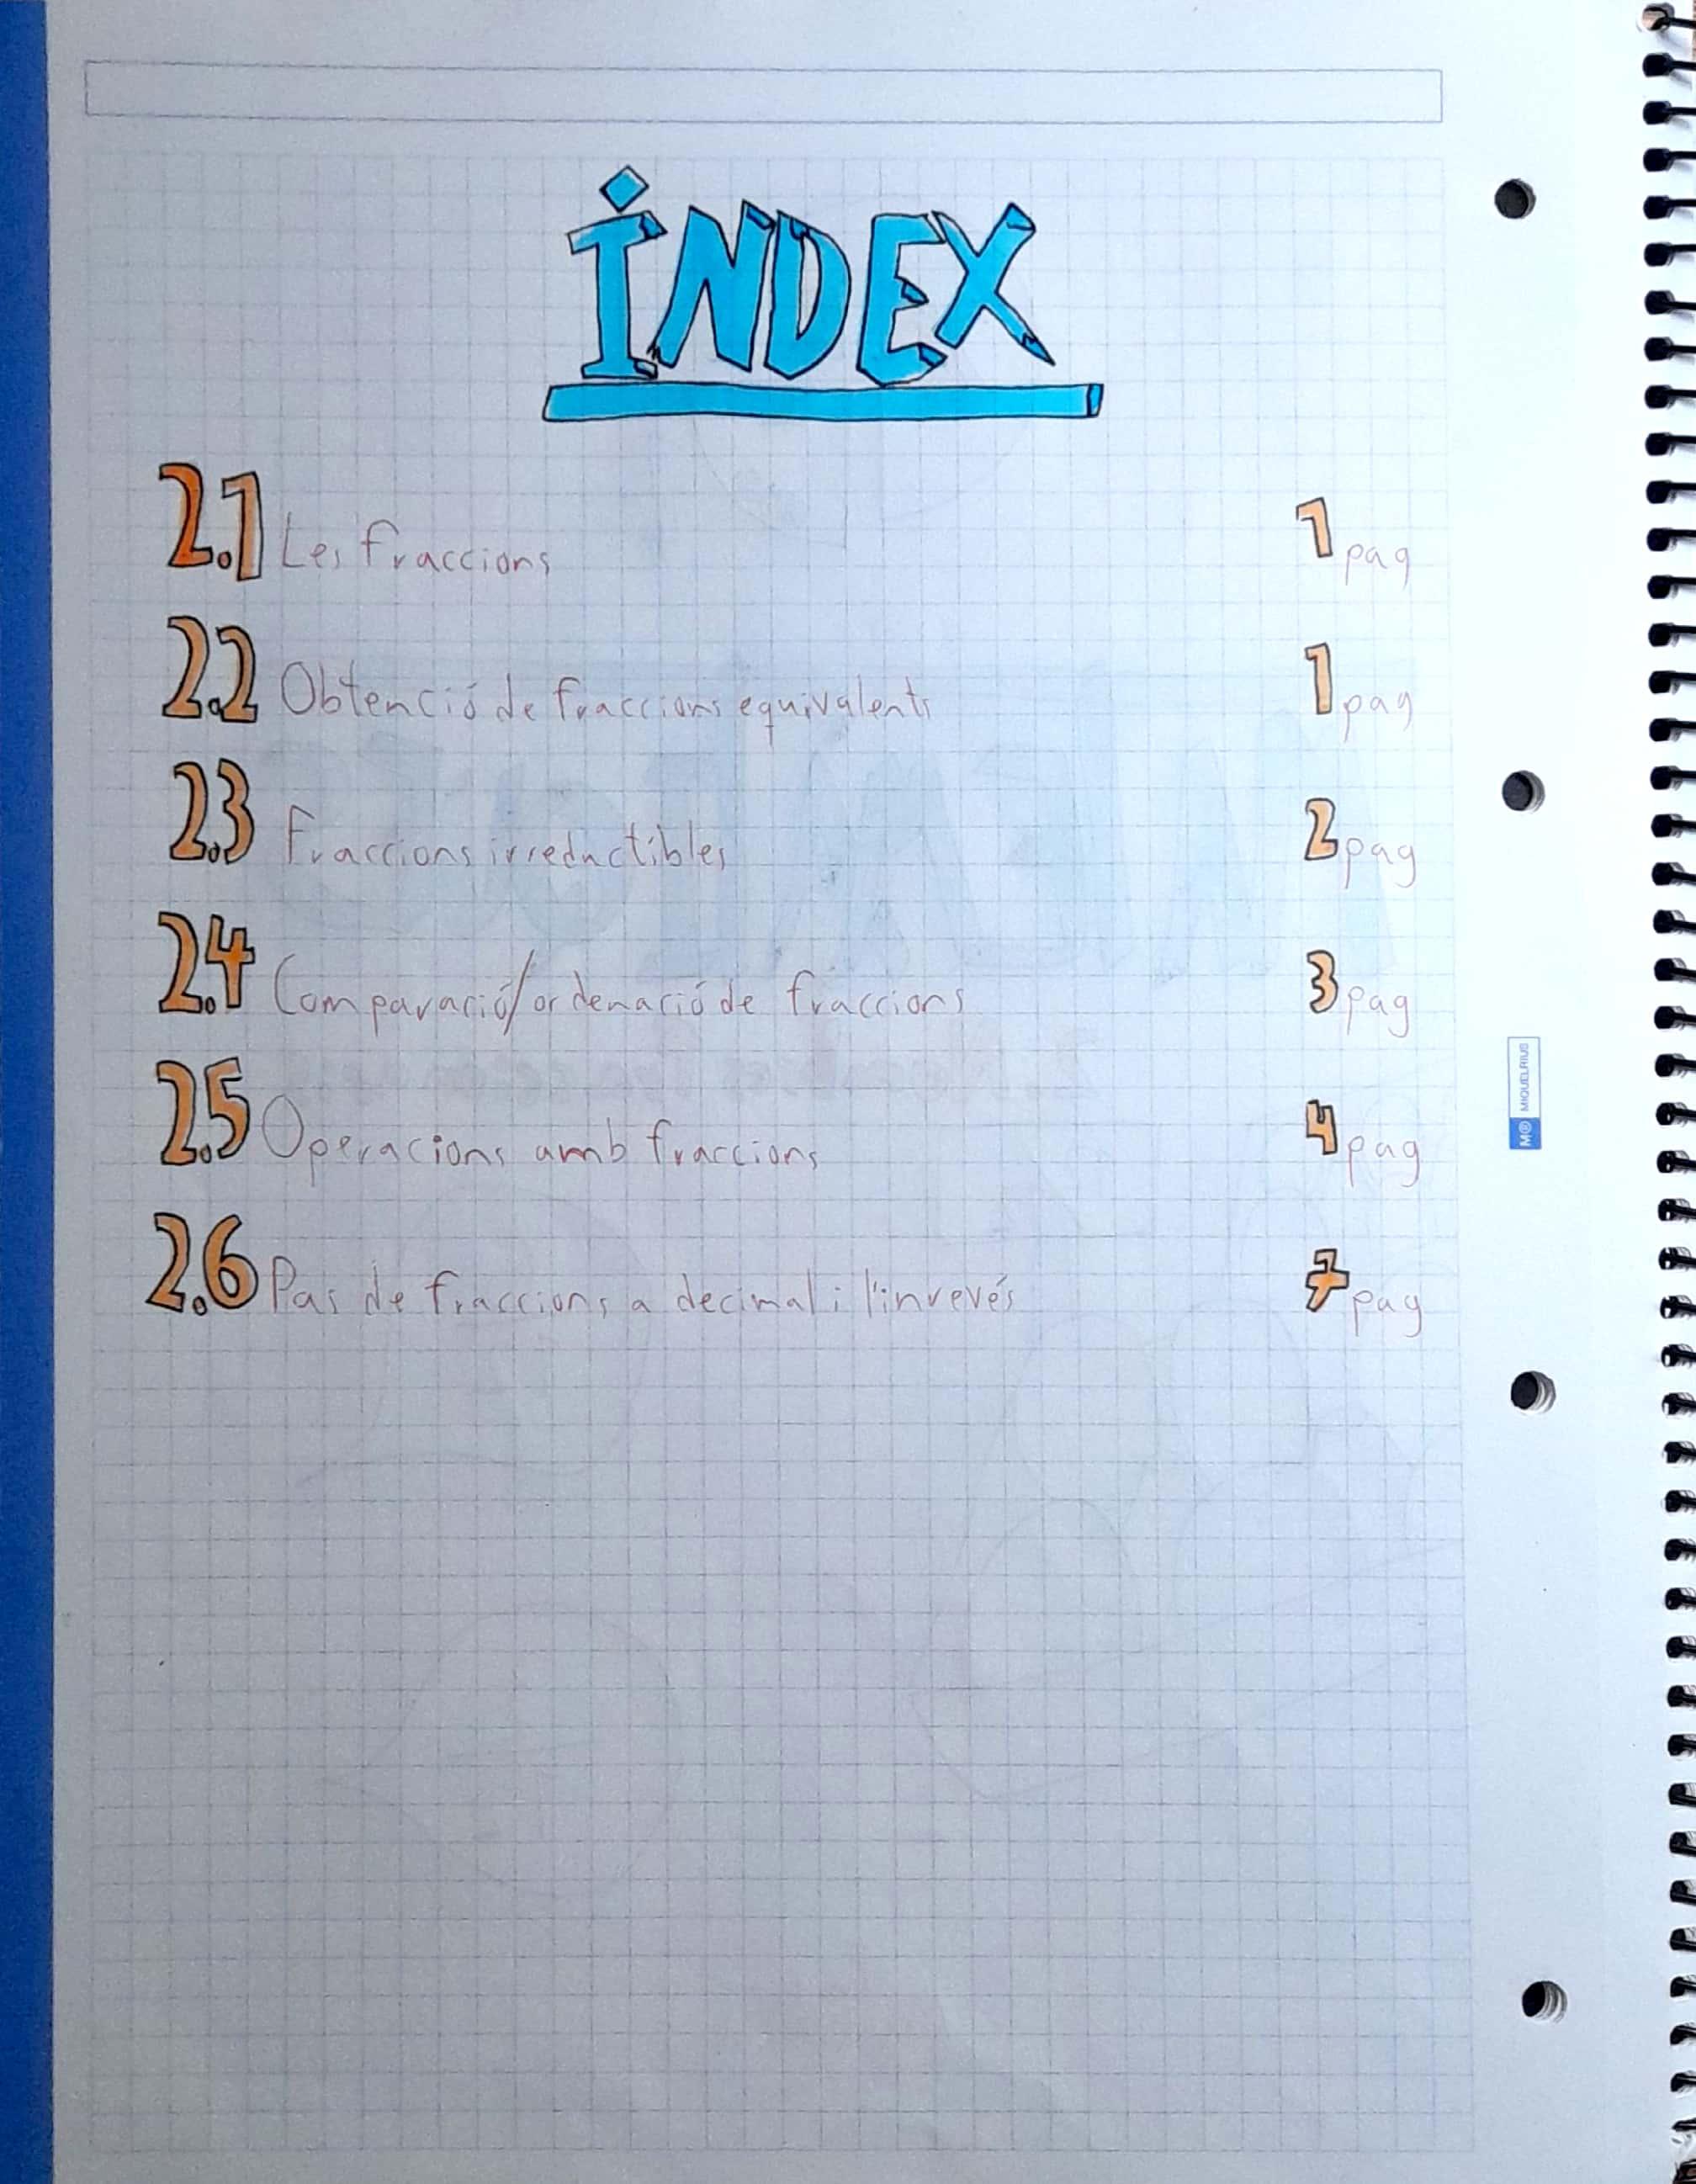 ÍNDEX
2.1 Les fraccions 1 pag
2.2 Obtenció de fraccions equivalents 1 pag
2.3 Fraccions irreductibles 2 pag
2.4 Comparació/ordenació de fraccions 3 pag
2.5 Operacions amb fraccions 4 pag
2.6 Pas de fraccions a decimal i l'inrevés 7 pag
M® MIQUELRIUS